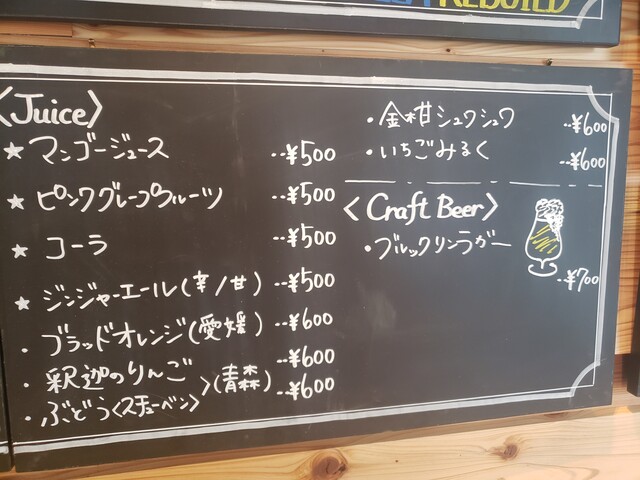 REBUILD
〈Juice〉
★ マンゴージュース ··¥500
★ ピンクグレープフルーツ ··¥500
★ コーラ ··¥500
★ ジンジャーエール(辛/甘) ··¥500
・ブラッドオレンジ(愛媛) ··¥600
・釈迦のりんご 〉(青森) ··¥600
・ぶどう〈スチューベン〉 ··¥600
・金柑シュワシュワ ··¥600
・いちごみるく ··¥600
〈Craft Beer〉
・ブルックリンラガー
··¥700